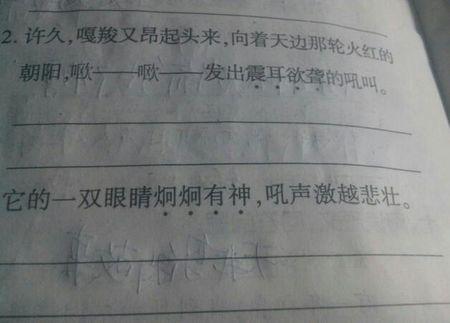 2. 许久,嘎羧又昂起头来,向着天边那轮火红的
朝阳,瞅——瞅——发出震耳欲聋的吼叫。
它的一双眼睛炯炯有神,吼声激越悲壮。